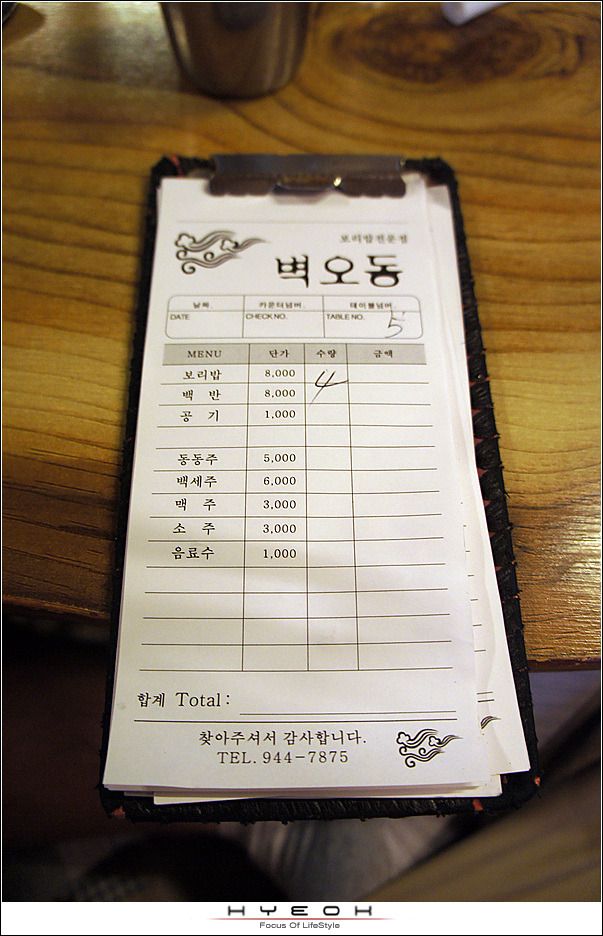 보리밥전문점
벽오동
날짜. 카운터넘버. 테이블넘버.
DATE CHECK NO. TABLE NO. 5
MENU 단가 수량 금액
보리밥 8,000 4
백 반 8,000
공 기 1,000
동동주 5,000
백세주 6,000
맥 주 3,000
소 주 3,000
음료수 1,000
합계 Total:
찾아주셔서 감사합니다.
TEL. 944-7875
HYEOH
Focus Of LifeStyle